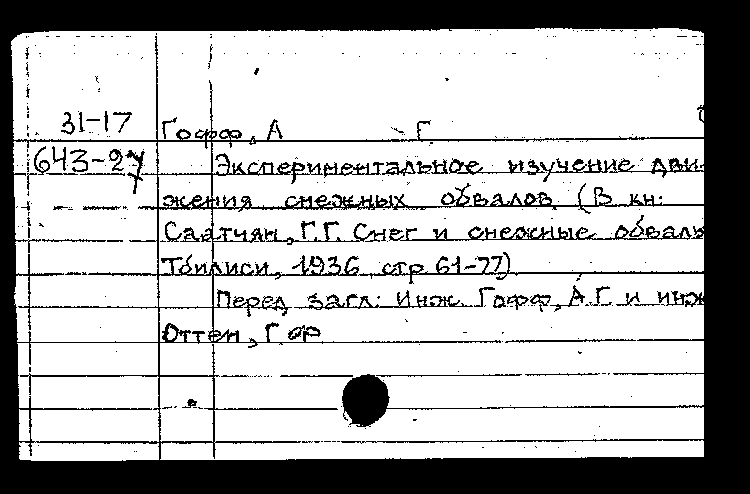 31-17 Гофф, А Г.
643-27 Экспериментальное изучение дви-
жения снежных обвалов. (В кн:
Саатчян, Г.Г. Снег и снежные обвалы
Тбилиси, 1936, стр 61-77).
Перед загл: Инж. Гофф, А.Г. и инж
Оттен, Г.